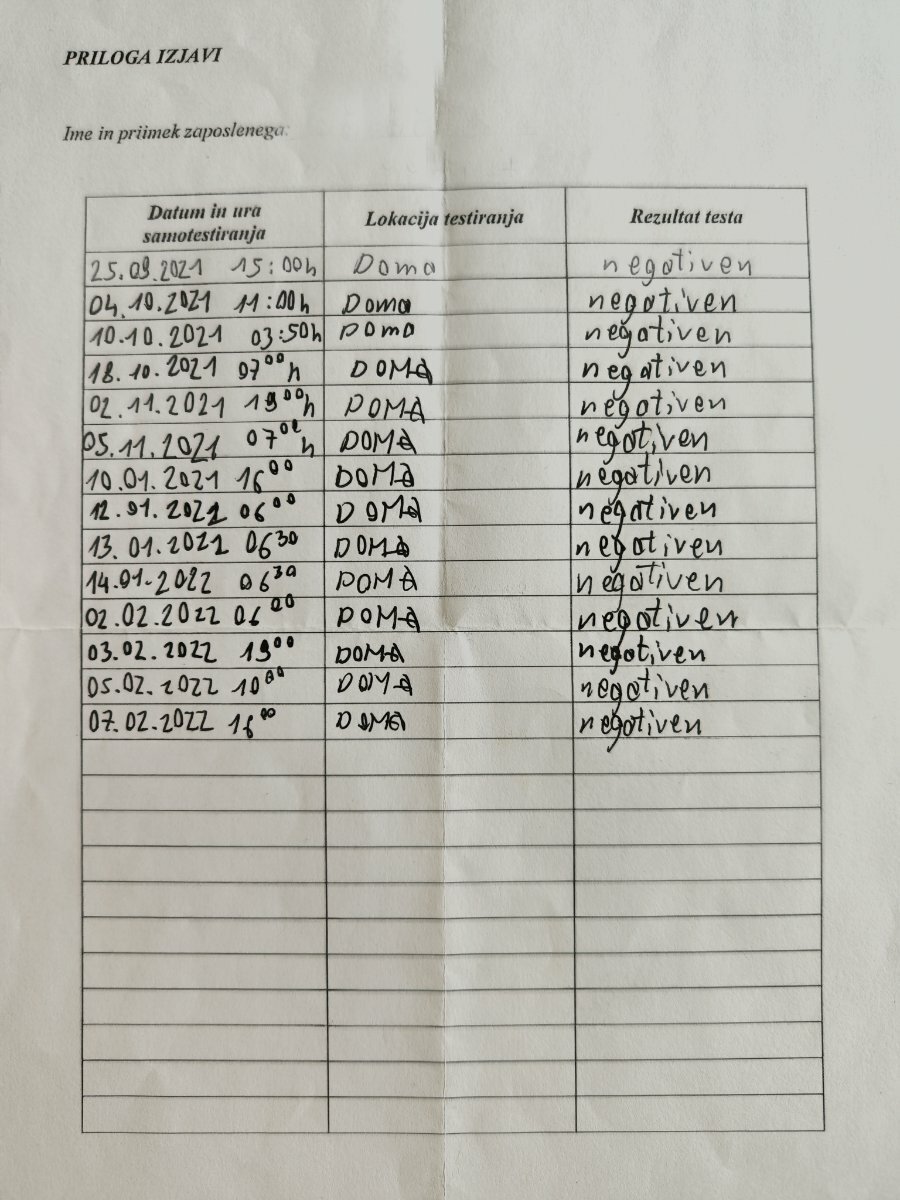 PRILOGA IZJAVI
Ime in priimek zaposlenega:
Datum in ura samotestiranja Lokacija testiranja Rezultat testa
25.09.2021 15:00h Doma negativen
04.10.2021 11:00h Doma negativen
10.10.2021 03:50h Doma negativen
18.10.2021 07⁰⁰h DOMA negativen
02.11.2021 19⁰⁰h DOMA negativen
05.11.2021 07⁰⁰h DOMA negativen
10.01.2021 16⁰⁰ DOMA negativen
12.01.2021 06⁰⁰ DOMA negativen
13.01.2021 06³⁰ DOMA negativen
14.01-2022 06³⁰ DOMA negativen
02.02.2022 06⁰⁰ DOMA negativen
03.02.2022 19⁰⁰ DOMA negativen
05.02.2022 10⁰⁰ DOMA negativen
07.02.2022 16⁰⁰ DOMA negativen